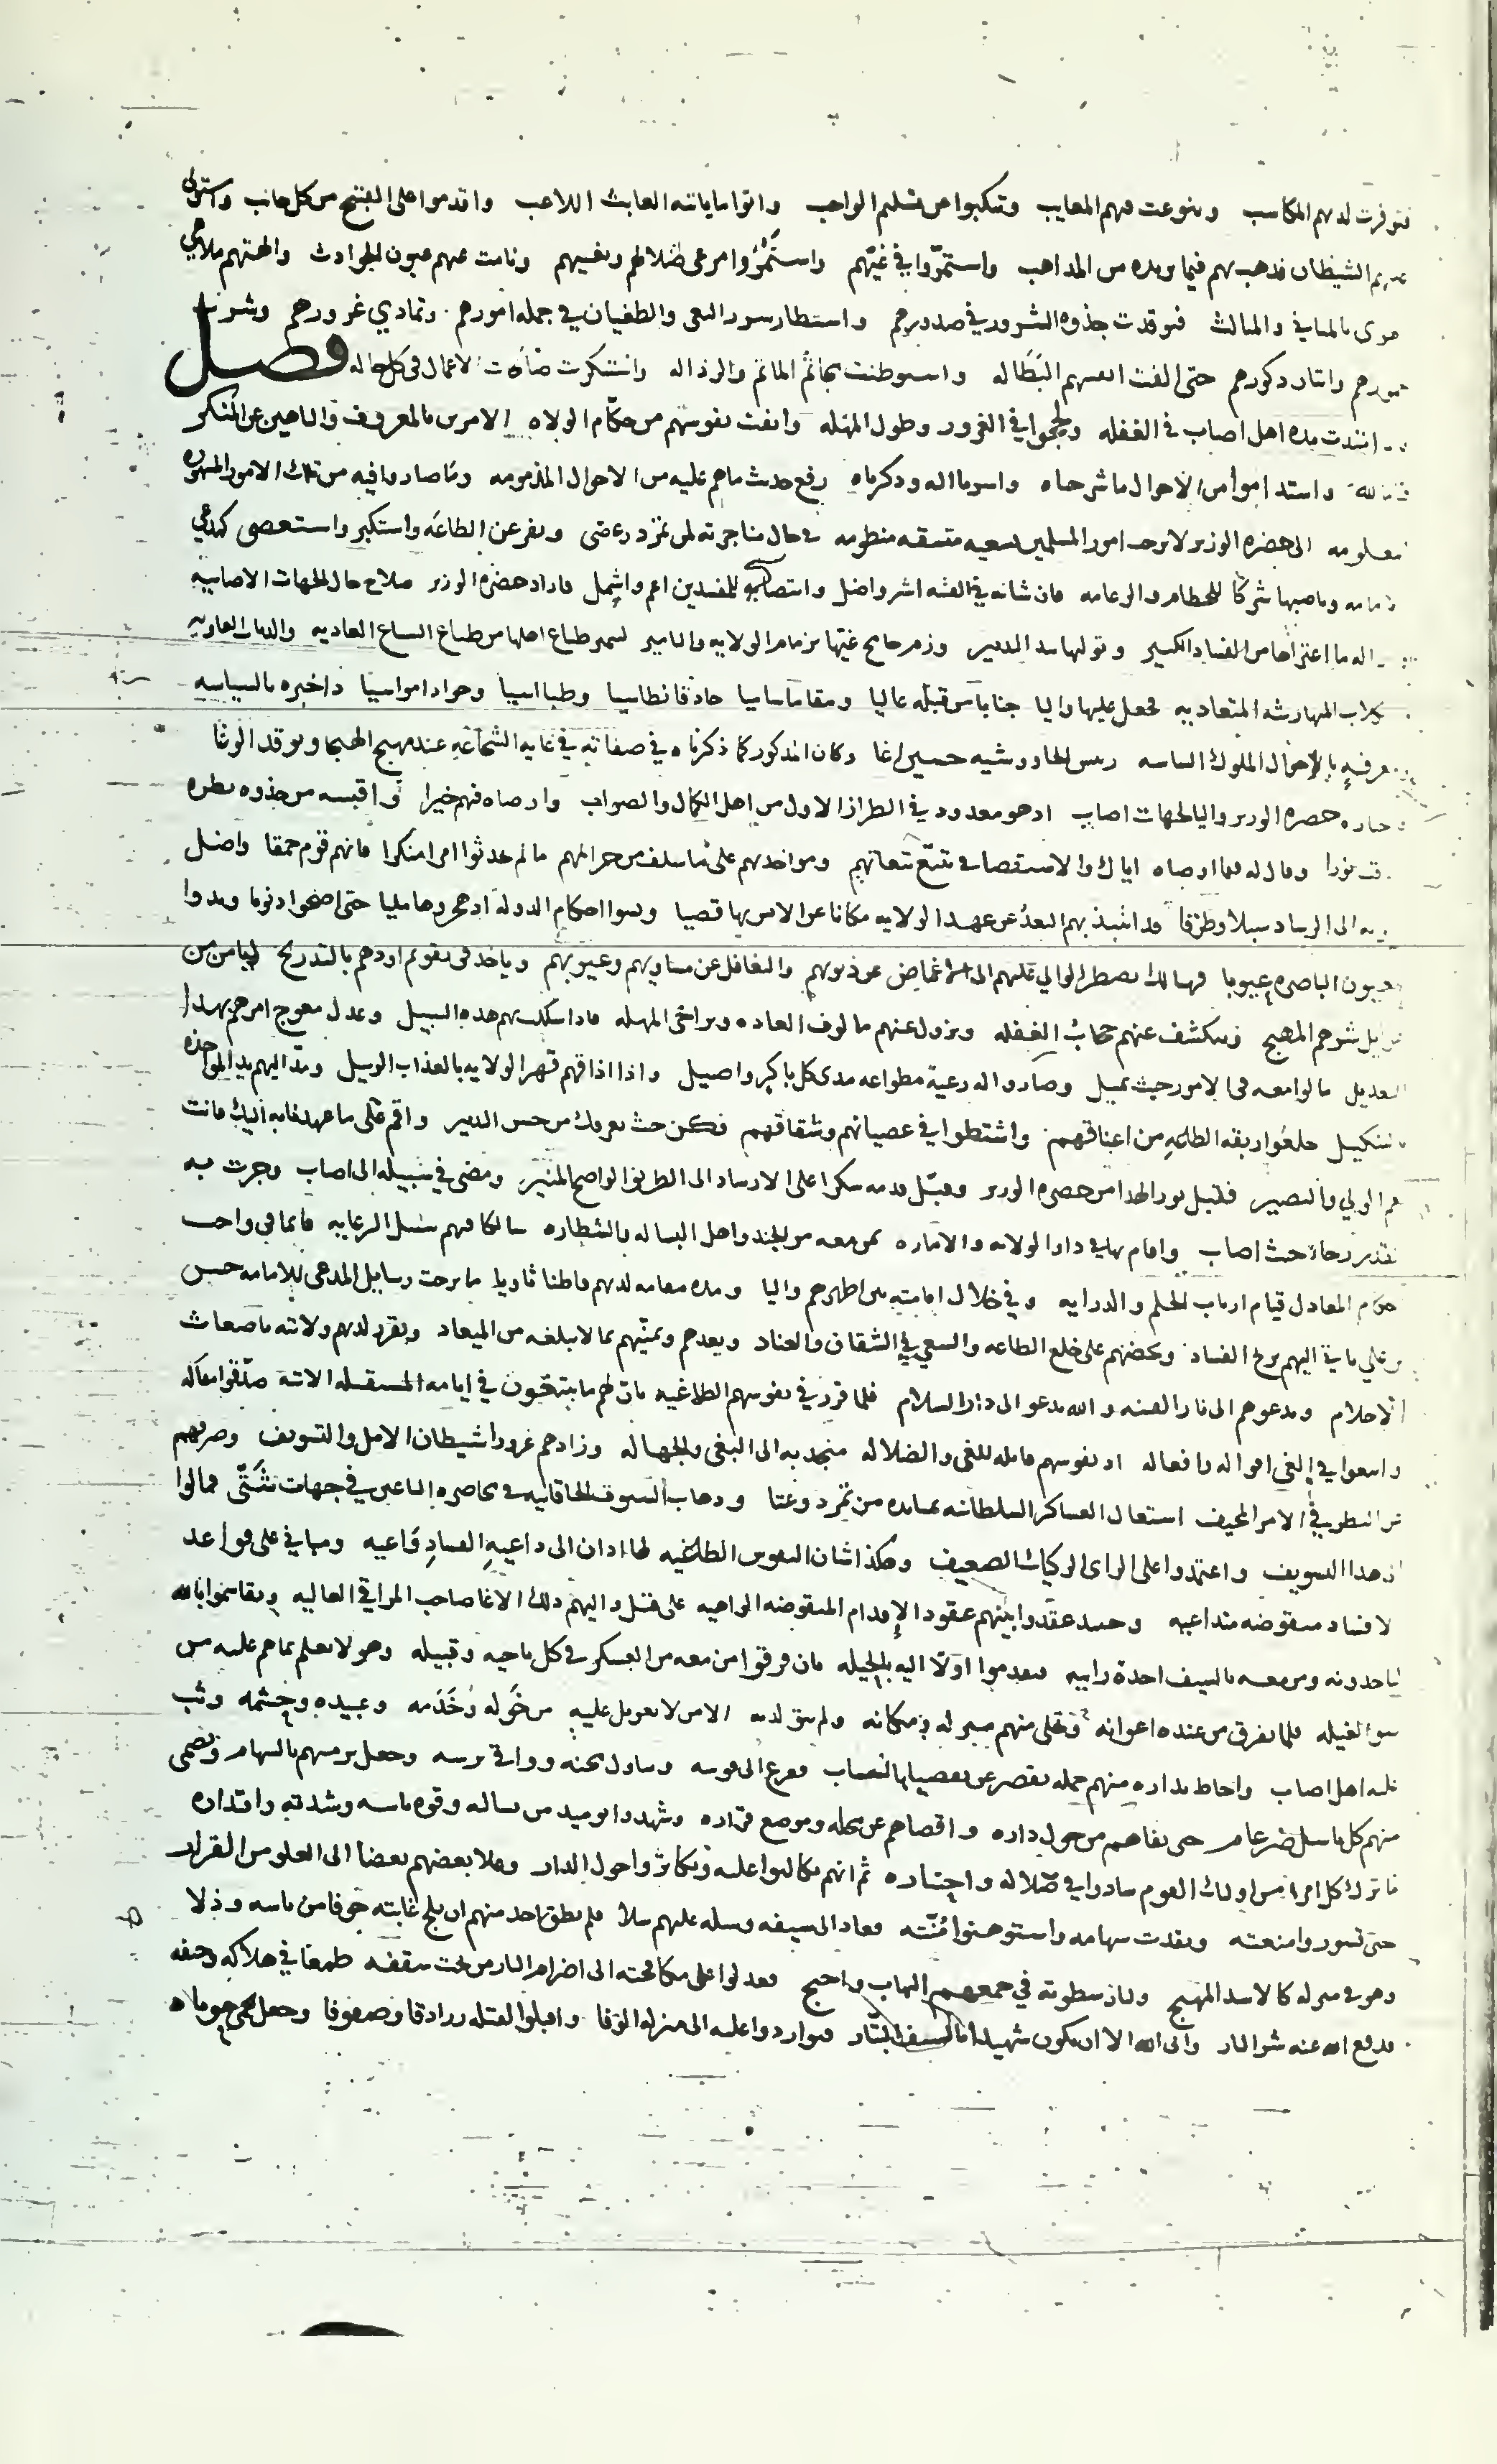 فتوفرت لديهم المكاسب وتنوعت فيهم المعايب وتنكبوا عن تسليم الواجب واتوا ما ياتيه العابث اللاعب واقدموا على القبيح من كل جانب واستولى
عليهم الشيطان فذهب بهم فيما يريده من المذاهب واستمروا في غيهم واستمروا مرعى ضلالهم وبغيهم ونامت عنهم عيون الحوادث والهتهم ملاهي
الهوى بالمثاني والمثالث فتوقدت جذوه الشرور في صدورهم واستطار سور البغى والطغيان في جمله امورهم وتمادي غرورهم وشرت
حتى الفت انفسهم البطاله واستوطنت مجاثم الماثم والرذاله واستنكرت الاعمال في كل حاله فصل
امتدت مده اهل اصاب في الغفله ولججوا في الغرور وطول المهله وانفت نفوسهم من حكام الولاه الامرين بالمعروف والناهين عن المنكر
واستداموا من الاحوال ما شرحناه واسوما اله وذكرناه رفع حديث ما هم عليه من الاحوال المذمومه وما صاروا فيه من تلك الامور
معلومه الى حضره الوزير لا برحت امور المسلمين بسعيه متسقه منظومه في حال مناجزته لمن تمرد وعصى ونفر عن الطاعه واستكبر واستعصى كمدعي
الامامه وناصبها شركا للحطام والزعامه فان شانه في الفتنه اشر واضل وانتصابه للمفسدين اعم واشمل فاراد حضره الوزير صلاح حال الجهات الاصابيه
وازاله ما اعتراها من الفساد الكبير وتولها بيد التدبير وزم جامح غيها بزمام الولايه والتامير لتميز طباع اهلها من طباع السباع العاديه والذياب العاويه
والكلاب المهارشه المتعاديه فجعل عليها واليا جنابا من قبله عاليا ومقاما ساميا حاذقا نطاسيا وطبا اسيا وجوادا مواسيا ذا خبره بالسياسه
ومعرفه باحوال الملوك الساسه رئيس الجاووشيه حسين اغا وكان المذكور كما ذكرناه في صفاته في غايه الشجاعه عند مهيج الهيجا وموقد الوغا
فاختاره حضره الوزير واليا لجهات اصاب اذ هو معدود في الطراز الاول من اهل الكمال والصواب واوصاه فيهم خيرا واقبسه من جذوه نظره
نورا وقال له فيما اوصاه اياك والاستقصا في تتبع تبعاتهم ومواخذتهم على ما سلف من جرائمهم ما لم يحدثوا امرا منكرا فانهم قوم حمقا واضل
البريه الى الرشاد سبلا وطرقا قد انتبذ بهم البعد عن عهد الولايه مكانا عن الانس بها قصيا ونسوا احكام الدوله اذ هجروها مليا حتى اضحوا ذنوبا وبدوا
لعيون الباصره عيوبا فهنالك يضطر الوالي عليهم الى الاغماض عن ذنوبهم والتغافل عن مساويهم وعيوبهم وياخذ في تقويم اودهم بالتدريج ليامن من
غوايل شرهم المهيج وينكشف عنهم حجاب الغفله ويزول عنهم مالوف العاده وتراخي المهله فاذا سلكت بهم هذه السبيل وعدل معوج امرهم بهذا
التعديل مالوا معه في الامور حيث يميل وصاروا له رعية مطواعه مدى كل باكر واصيل واذا اذاقهم قهر الولايه بالعذاب الوبيل ومد اليهم يد المواخذه
والتنكيل خلعوا ربقه الطاعه من اعناقهم واشتطوا في عصيانهم وشقاقهم فكن حيث نعرفك من حسن التدبير واقم على ما عهدنا به اليك فانت
نعم الولي والنصير فقبل نور الهدا من حضره الوزير وقبل قدمه شكرا على الارشاد الى الطريق الواضح المنير ومضى في سبيله الى اصاب وجرت به
المقادير رخاء حيث اصاب واقام بها في دار الولايه والاماره بمن معه من الجند واهل البساله والشطاره سالكا فيهم سبل الرعايه قائما في واجب
حكام المعادل قيام ارباب الحلم والدرايه وفي خلال اقامته بين اظهرهم واليا ومده مقامه لديهم قاطنا ثاويا ما برحت رسايل المدعي للامامه حسن
بن علي تاتي اليهم بريح الفساد وتحضهم على خلع الطاعه والسعي في الشقاق والعناد ويعدهم ويمنيهم بما لا يبلغه من الميعاد ويقرر لديهم ولايته باضغاث
الاحلام ويدعوهم الى نار الفتنه والله يدعو الى دار السلام فلما قرر في نفوسهم الطاغيه بان لهم ما يبتغون في ايامه المستقبله الاتيه صدقوا مقاله
واتبعوا في الغي اقواله وافعاله اذ نفوسهم قابله للغي والضلاله منجذبه الى البغي والجهاله وزادهم غرورا شيطان الامل والتسويف وصرفهم
عن النظر في الامر المخيف اشتغال العساكر السلطانيه بمنابذه من تمرد وعتا وذهاب السيوف الخاقانيه في محاصره الباغين في جهات شتى فمالوا
الى هذا التسويف واعتمدوا على الراي الركيك الضعيف وهكذا شان النفوس الطاغيه لها اذان الى داعيه الفساد واعيه ومباني على قواعد
الافساد منقوضه متداعيه وحينئذ عقدوا بينهم عقود الاقدام المنقوضه الواهيه على قتل واليهم ذلك الاغا صاحب المراقي العاليه وتقاسموا بالله
لياخذونه ومن معه بالسيف اخذة رابيه فقدموا اولا اليه بالحيله بان فرقوا من معه من العسكر في كل ناحيه وقبيله وهو لا يعلم بما هم عليه من
سو الغيله فلما تفرق من عنده اعوانه وتخلى منهم منزله ومكانه ولم يبق لديه الا من لا تعويل عليه من خوله وخدمه وعبيده وحشمه وثب
عليه اهل اصاب واحاط بداره منهم جمله يقصر عن تقصيها الحساب ففزع الى قوسه وتناول مجنه وواقي ترسه وجعل يرميهم بالسهام ويصمي
منهم كل باسل ضرغام حتى نفاهم من حول داره واقصاهم عن محله وموضع قراره وشهدوا يوميد من بساله وقوه باسه وشدته واقتداره
ما ترك كل امرء من اوليك القوم سادرا في ضلاله واجتاره ثم انهم تكالبوا عليه وتكاثروا حول الدار وعلا بعضهم بعضا الى العلو من القرار
حتى تسوروا منعته ونفدت سهامه واستوهنوا منته فعاد الى سيفه وسله عليهم سلا فلم يطق احد منهم ان يلج غابته خوفا من باسه وذلا
وهو في منزله كالاسد المهيج ولنار سطوته في جمعهم التهاب واجيج فعدلوا على مكافحته الى اضرام النار من تحت سقفه طمعا في هلاكه وحتفه
فدفع الله عنه شر النار وابى الله الا ان يكون شهيدا بالسيف البتار فتواردوا عليه الى منزله الوفا واقبلوا لقتله زرادقا وصفوفا وجعل يحمي حوماه